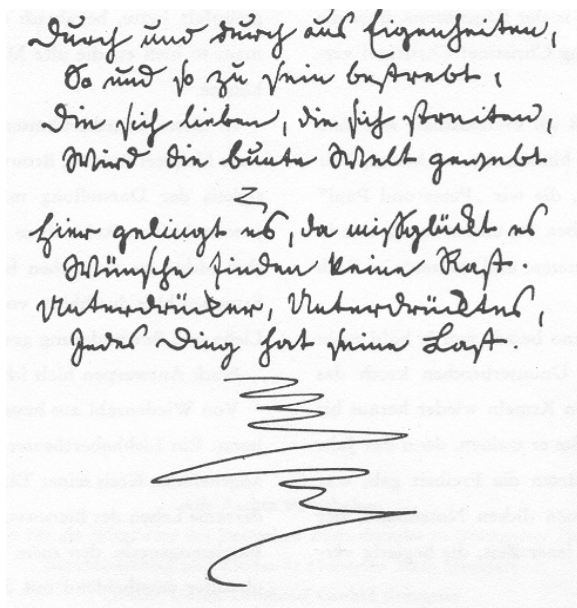 durch und durch aus Eigenheiten,
So und so zu sein bestrebt,
Die sich lieben, die sich streiten,
Wird die bunte Welt gewebt.
Hier gelingt es, da mißglückt es
Wünsche finden keine Rast.
Unterdrücker, Unterdrücktes,
Jedes Ding hat seine Last.